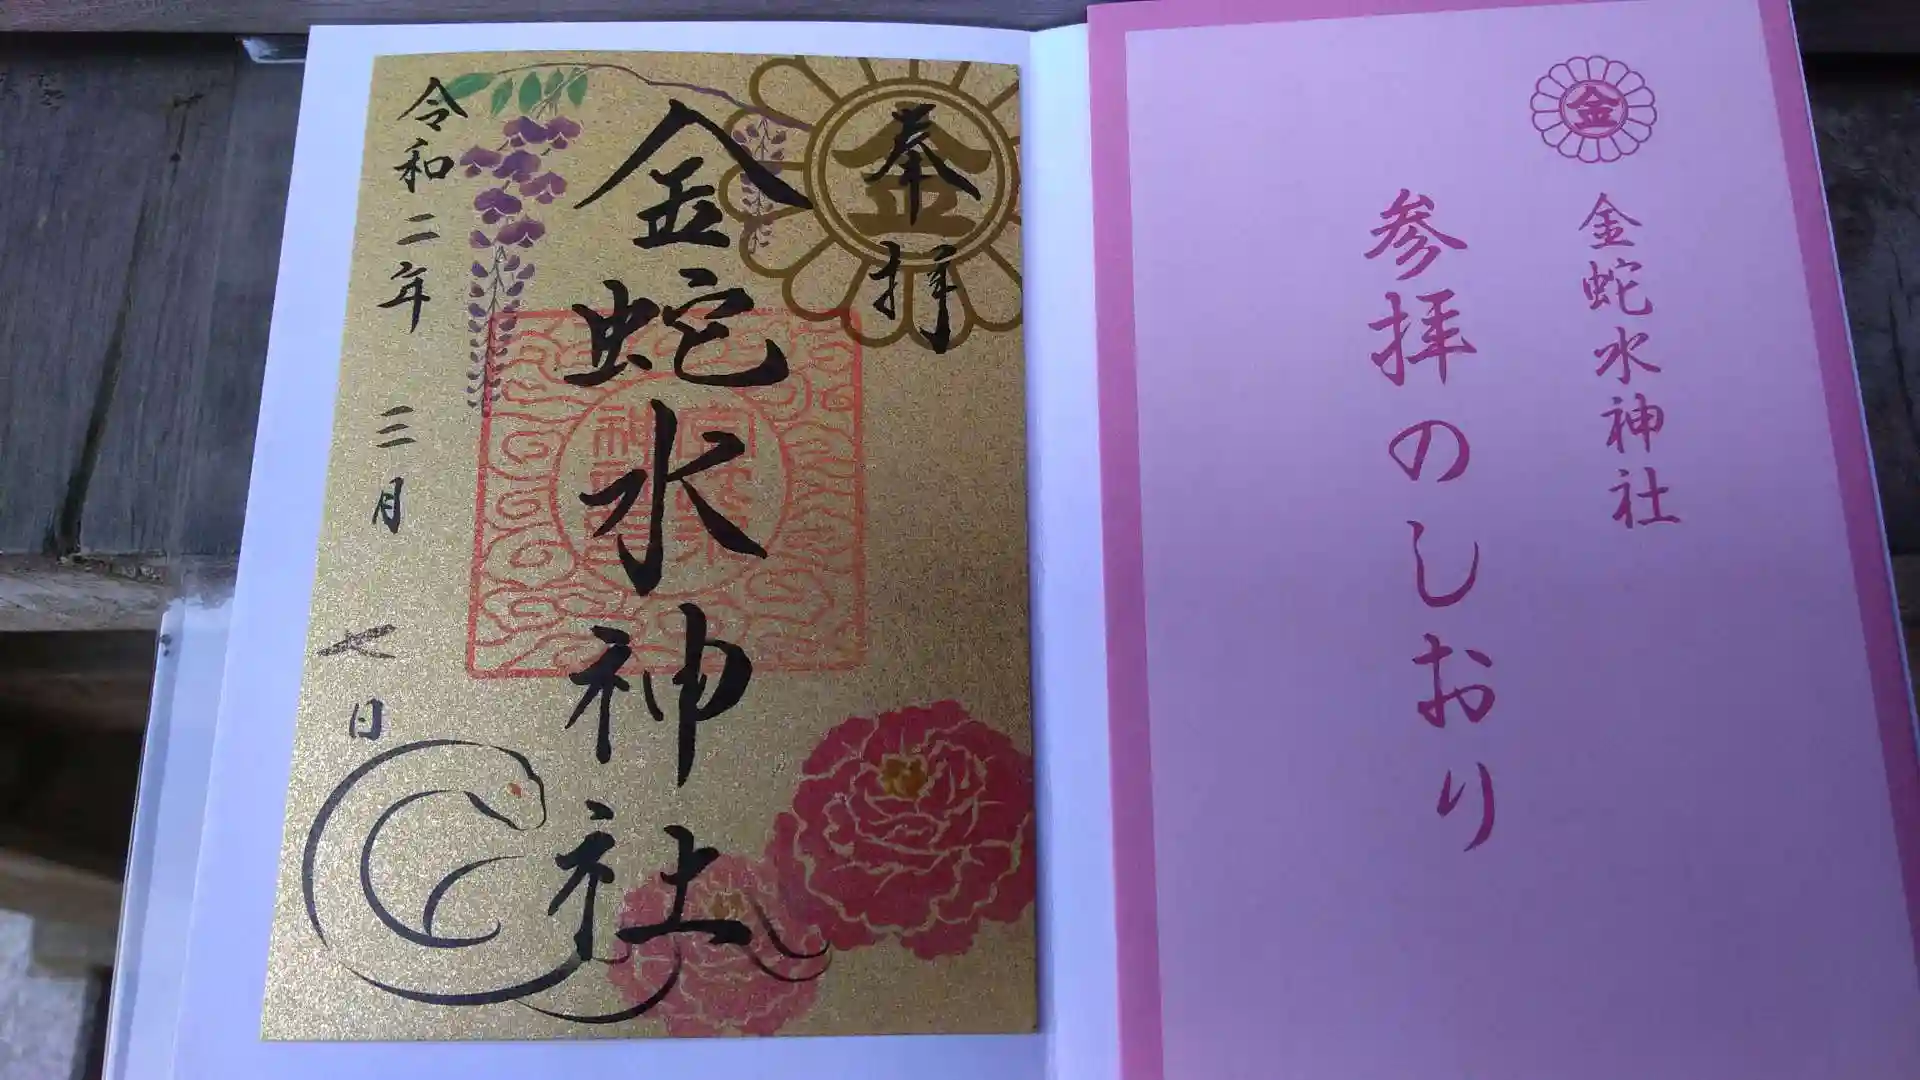 金
金蛇水神社
参拝のしおり
金
奉拝
金蛇水神社
令和二年 三月 七日